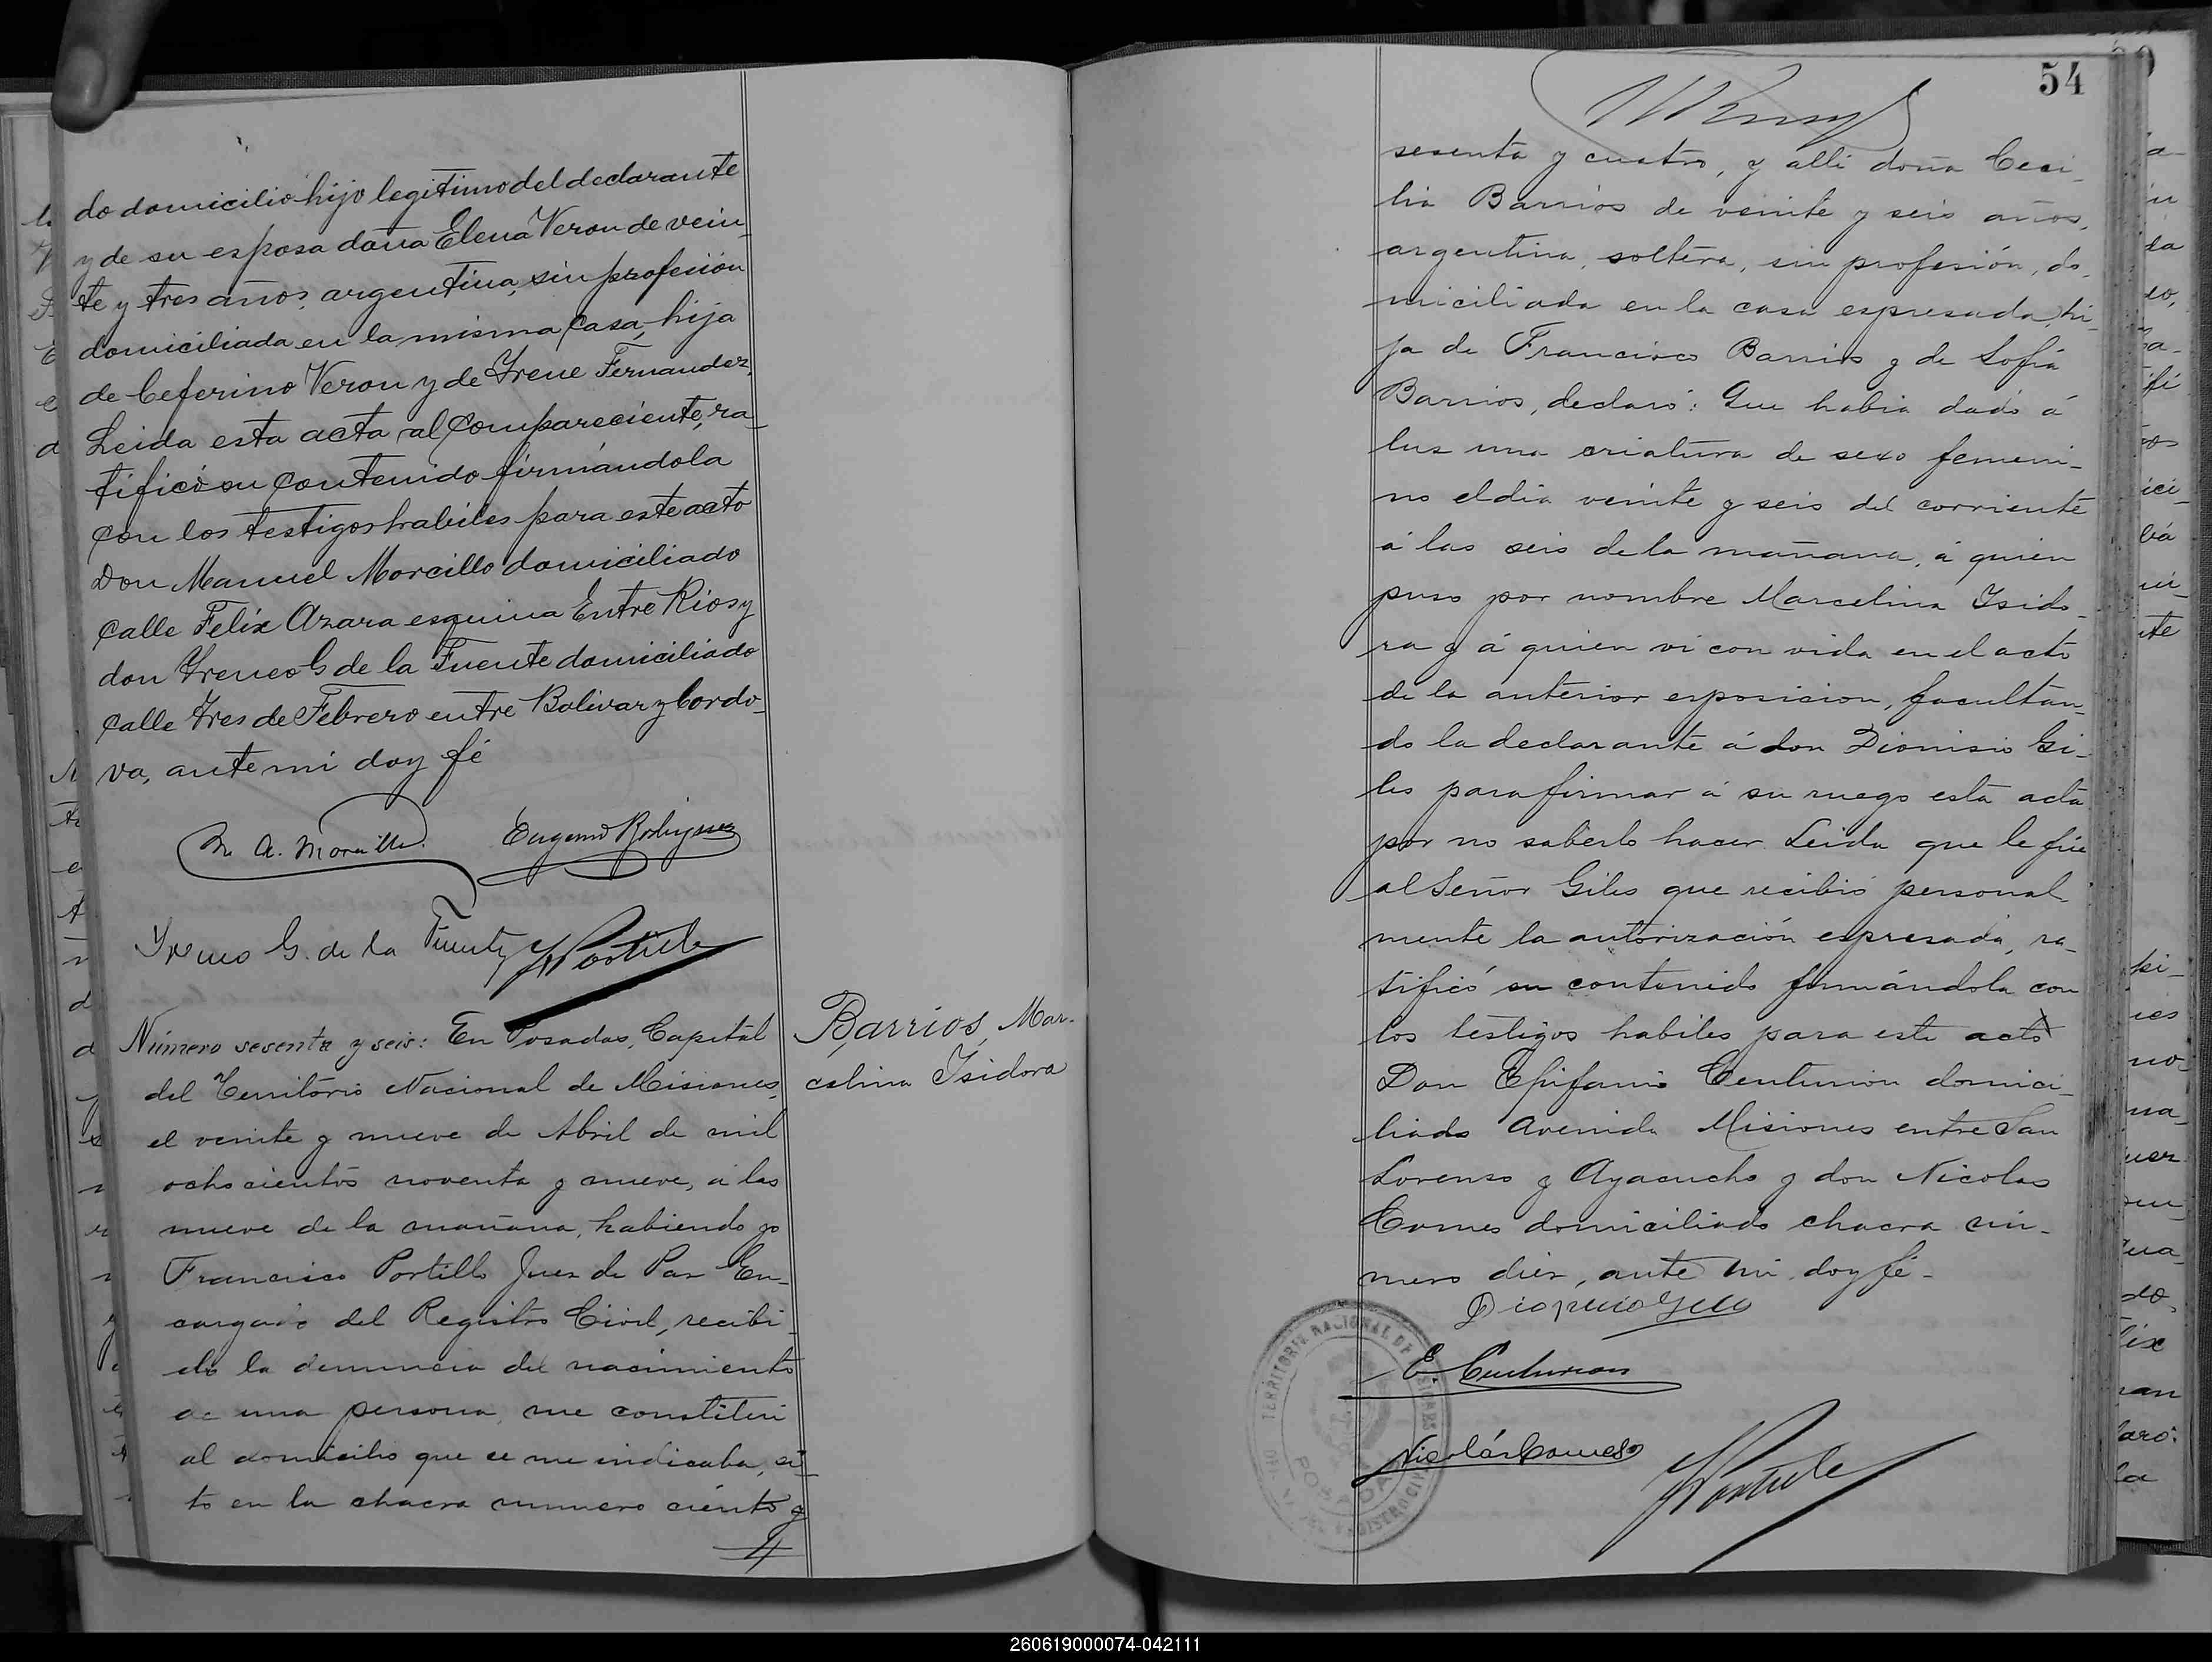 do domicilio hijo legitimo del declarante
y de su esposa doña Elena Veron de vein_
te y tres años, argentina, sin profesión
domiciliada en la misma casa, hija
de Ceferino Veron y de Yrene Fernandez.
Leida esta acta al compareciente, ra_
tificó su contenido firmándola
con los testigos habiles para este acto
Don Manuel Morcillo domiciliado
calle Felix Azara esquina Entre Rios y
don Yreneo G de la Fuente domiciliado
calle Tres de Febrero entre Bolivar y Cordo_
va, ante mi doy fé
M. A. Morcillo. Eugenio Rodriguez
Yreneo G. de la Fuente F Portillo
Número sesenta y seis: En Posadas, Capital
del Territorio Nacional de Misiones,
el veinte y nueve de Abril de mil
ochocientos noventa y nueve, á las
nueve de la mañana, habiendo yo
Francisco Portillo Juez de Paz En_
cargado del Registro Civil, recibi_
do la denuncia del nacimiento
de una persona, me constitui
al domicilio que se me indicaba, si_
to en la chacra numero ciento y
Barrios, Mar-
celina Isidora
54
sesenta y cuatro, y alli doña Ceci_
lia Barrios de veinte y seis años,
argentina, soltera, sin profesión, do_
miciliada en la casa espresada, hi_
ja de Francisco Barrios y de Sofia
Barrios, declaró: Que habia dado á
luz una criatura de sexo femeni_
no el dia veinte y seis del corriente
á las seis de la mañana, á quien
puso por nombre Marcelina Ysido_
ra y á quien vi con vida en el acto
de la anterior esposicion, facultan_
do la declarante á don Dionisio Gi_
les para firmar á su ruego esta acta
por no saberlo hacer. Leida que le fúe
al Señor Giles que recibió personal_
mente la autorización espresada, ra_
tificó su contenido firmándola con
los testigos habiles para este acto
Don Epifanio Centurion domici_
liado Avenida Misiones entre San
Lorenzo y Ayacucho y don Nicolas
Comes domiciliado chacra nú_
mero diez, ante mi doy fé-
Dionicio Giles
E. Centurion
Nicolás Comes
F Portillo
TERRITORIO NACIONAL DE MISIONES
POSADAS
260619000074-042111